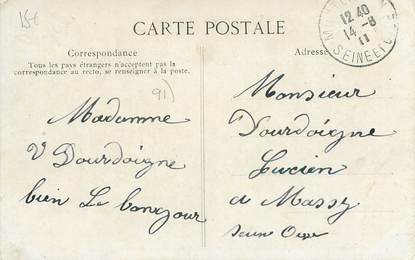 15€
CARTE POSTALE
Correspondance
Tous les pays étrangers n'acceptent pas la
correspondance au recto, se renseigner à la poste.
91)
Madamme
V Dourdoigne
bien Le bonjour
Adresse
12 40
14 - 8
11
SEINE ET
Monsieur
Dourdoigne
Lucien
a Massy
Seine Oise